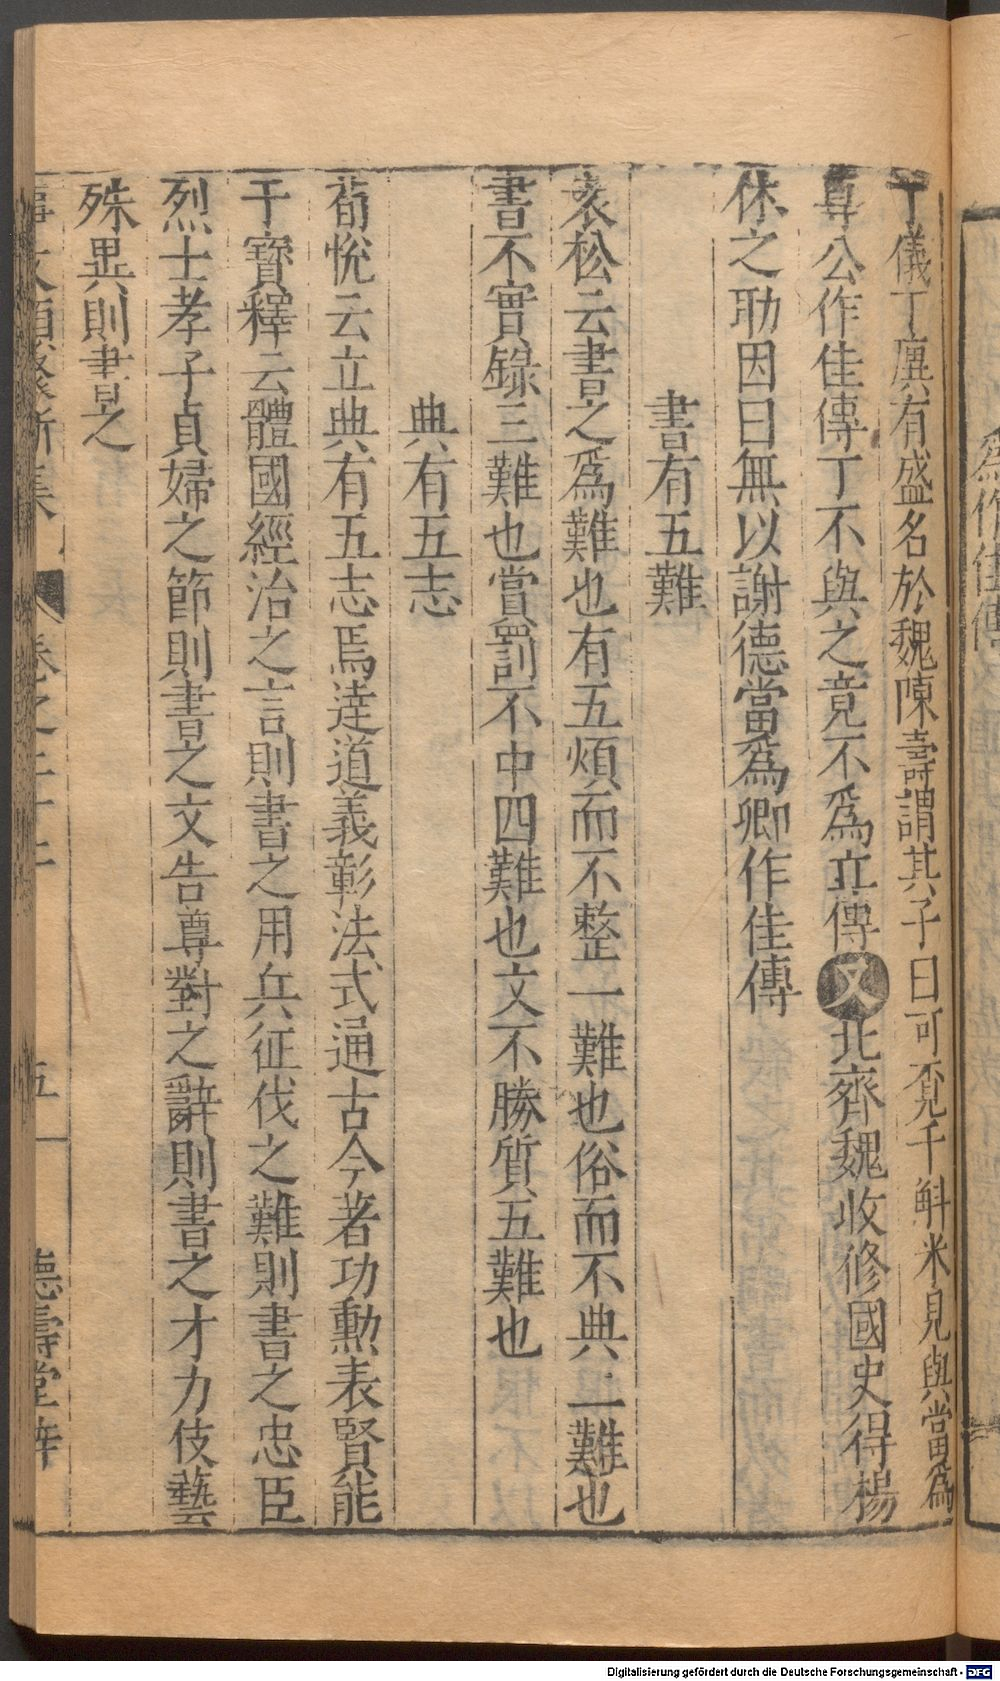 丁儀丁廙有盛名於魏陳壽謂其子曰可覓千斛米見與當爲
尊公作佳傳丁不與之竟不爲立傳又北齊魏收修國史得楊
休之助因曰無以謝德當爲卿作佳傳
書有五難
袁松云書之爲難也有五煩而不整一難也俗而不典二難也
書不實錄三難也賞罰不中四難也文不勝質五難也
典有五志
荀悅云立典有五志焉達道義彰法式通古今著功勳表賢能
干寶釋云體國經治之言則書之用兵征伐之難則書之忠臣
烈士孝子貞婦之節則書之文告尊對之辭則書之才力伎藝
殊異則書之
事文類聚新集 卷之二十二 五 德壽堂梓
爲作佳傳
Digitalisierung gefördert durch die Deutsche Forschungsgemeinschaft - DFG